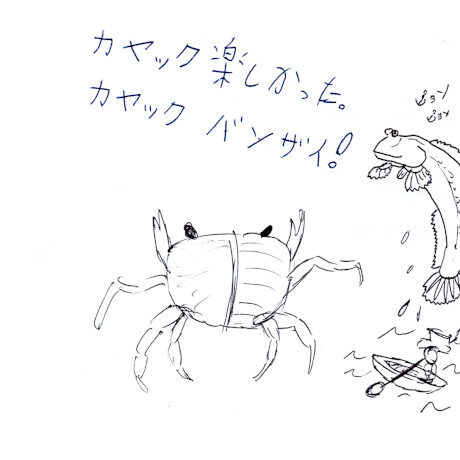 カヤック楽しかった。
カヤック バンザイ!
ピョン
ピョン